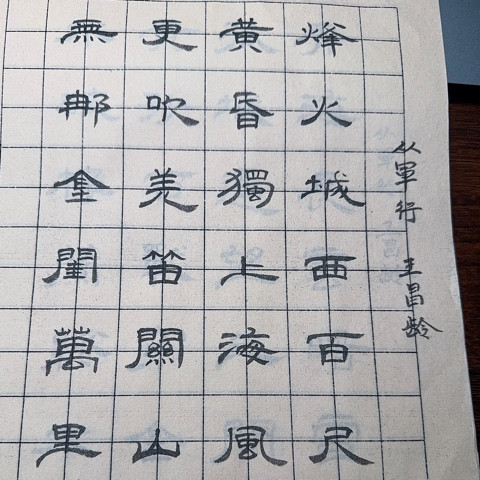 从軍行 王昌齡
烽火城西百尺
黄昏獨上海風
更吹羌笛關山
無那金閨萬里